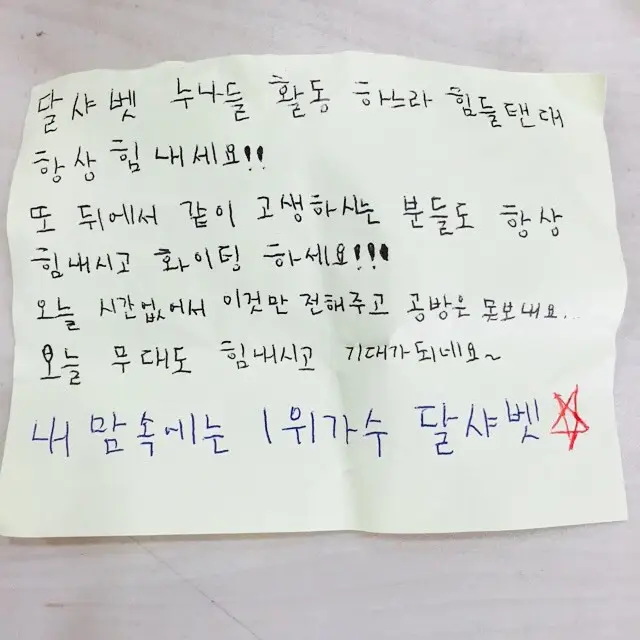 달샤벳 누나들 활동 하느라 힘들텐대
항상 힘 내세요!!
또 뒤에서 같이 고생하시는 분들도 항상
힘내시고 화이팅 하세요!!!
오늘 시간없어서 이것만 전해주고 공방은 못보내요...
오늘 무대도 힘내시고 기대가되네요~
내 맘속에는 1위가수 달샤벳☆